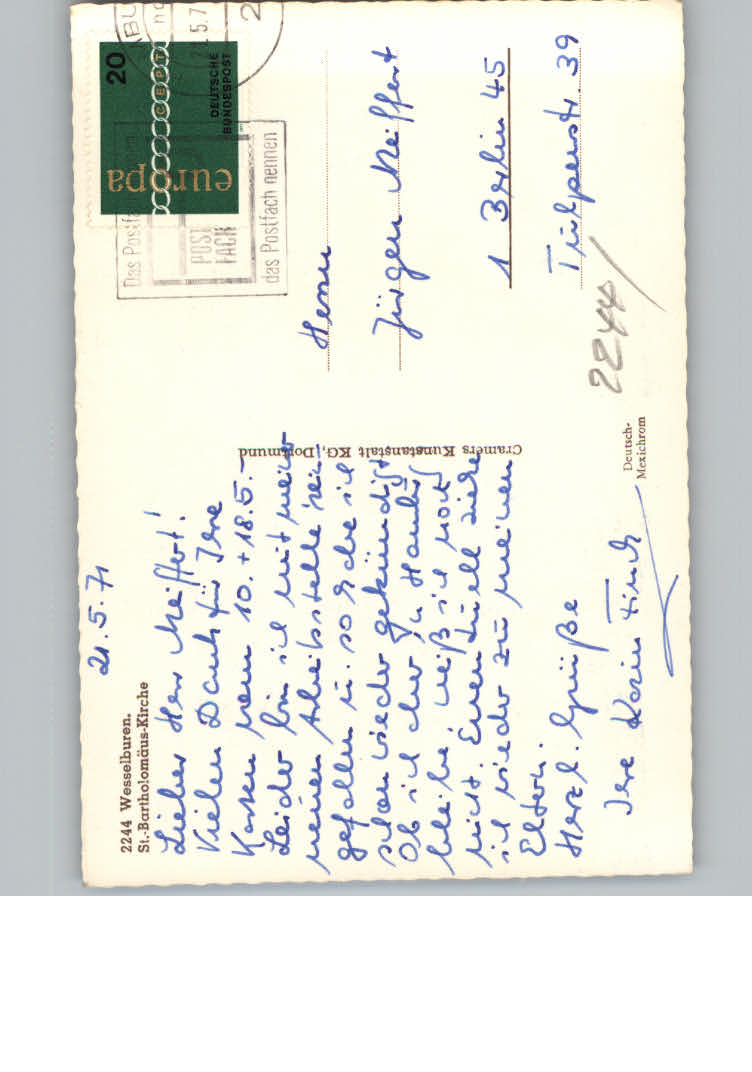 2244 Wesselburen.
St.-Bartholomäus-Kirche
21.5.71
Lieber Herr Meiffert!
Vielen Dank für Ihre
Karten vom 10. + 18.5.–
Leider bin ich mit meiner
neuen Arbeitsstelle rein-
gefallen u. so habe ich
schon wieder gekündigt
Ob ich aber in Hambg
bleibe, weiß ich noch
nicht. Eventuell ziehe
ich wieder zu meinen
Eltern.
Herzl. Grüße
Ihre Karin Finck
Cramers Kunstanstalt KG, Dortmund
Deutsch-
Mexichrom
20
CEPT
europa
DEUTSCHE
BUNDESPOST
.5.7
2
das Postfach nennen
POST
FACH
Das Postfa
Herrn
Jürgen Meiffert
1 Berlin 45
Tulpenstr. 39
2244